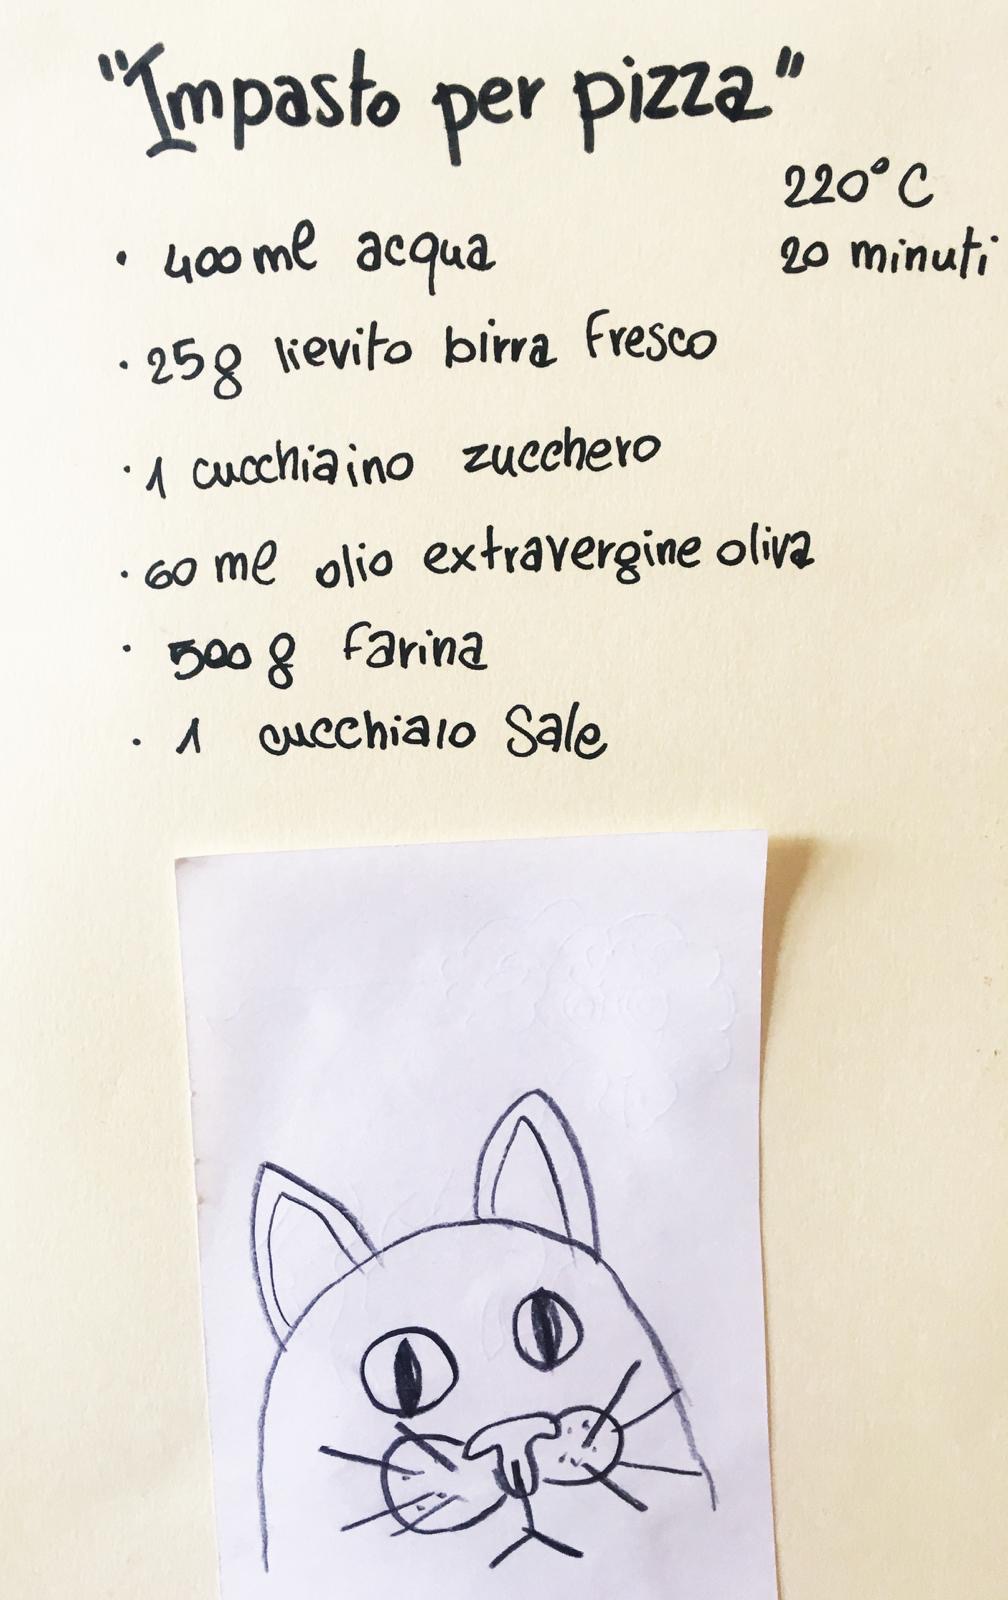 "Impasto per pizza"
220° C
20 minuti
· 400 ml acqua
· 25 g lievito birra fresco
· 1 cucchiaino zucchero
· 60 ml olio extravergine oliva
· 500 g farina
· 1 cucchiaio Sale